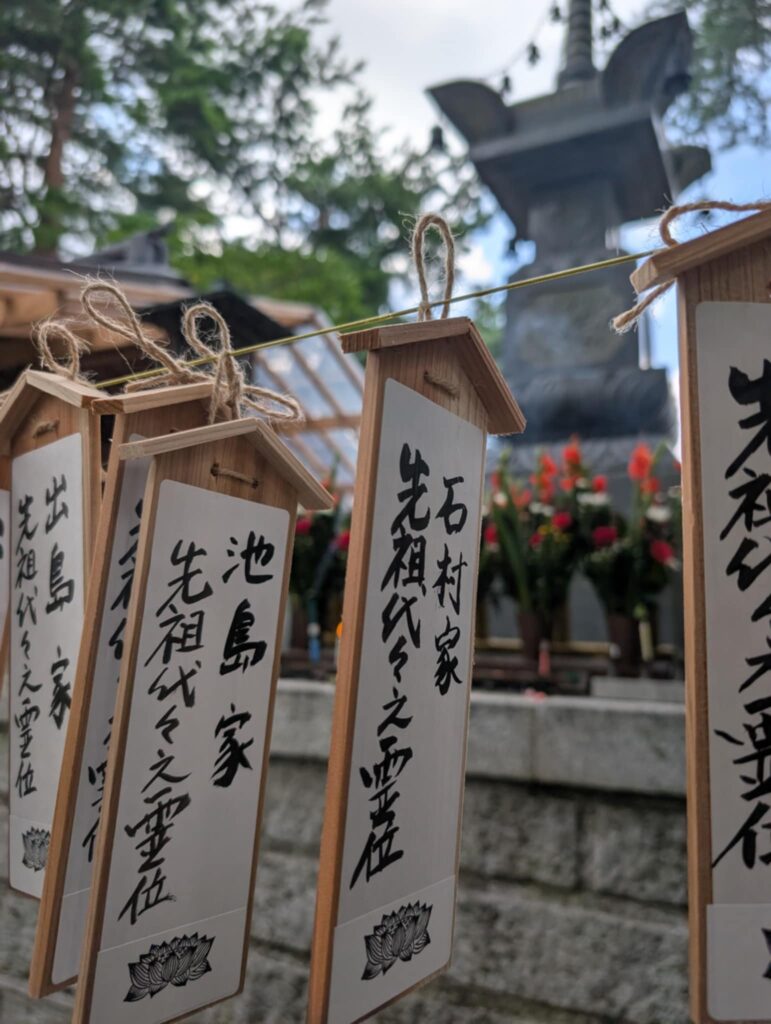 出島家
先祖代々之霊位
池島家
先祖代々之霊位
石村家
先祖代々之霊位
先祖代々之霊位